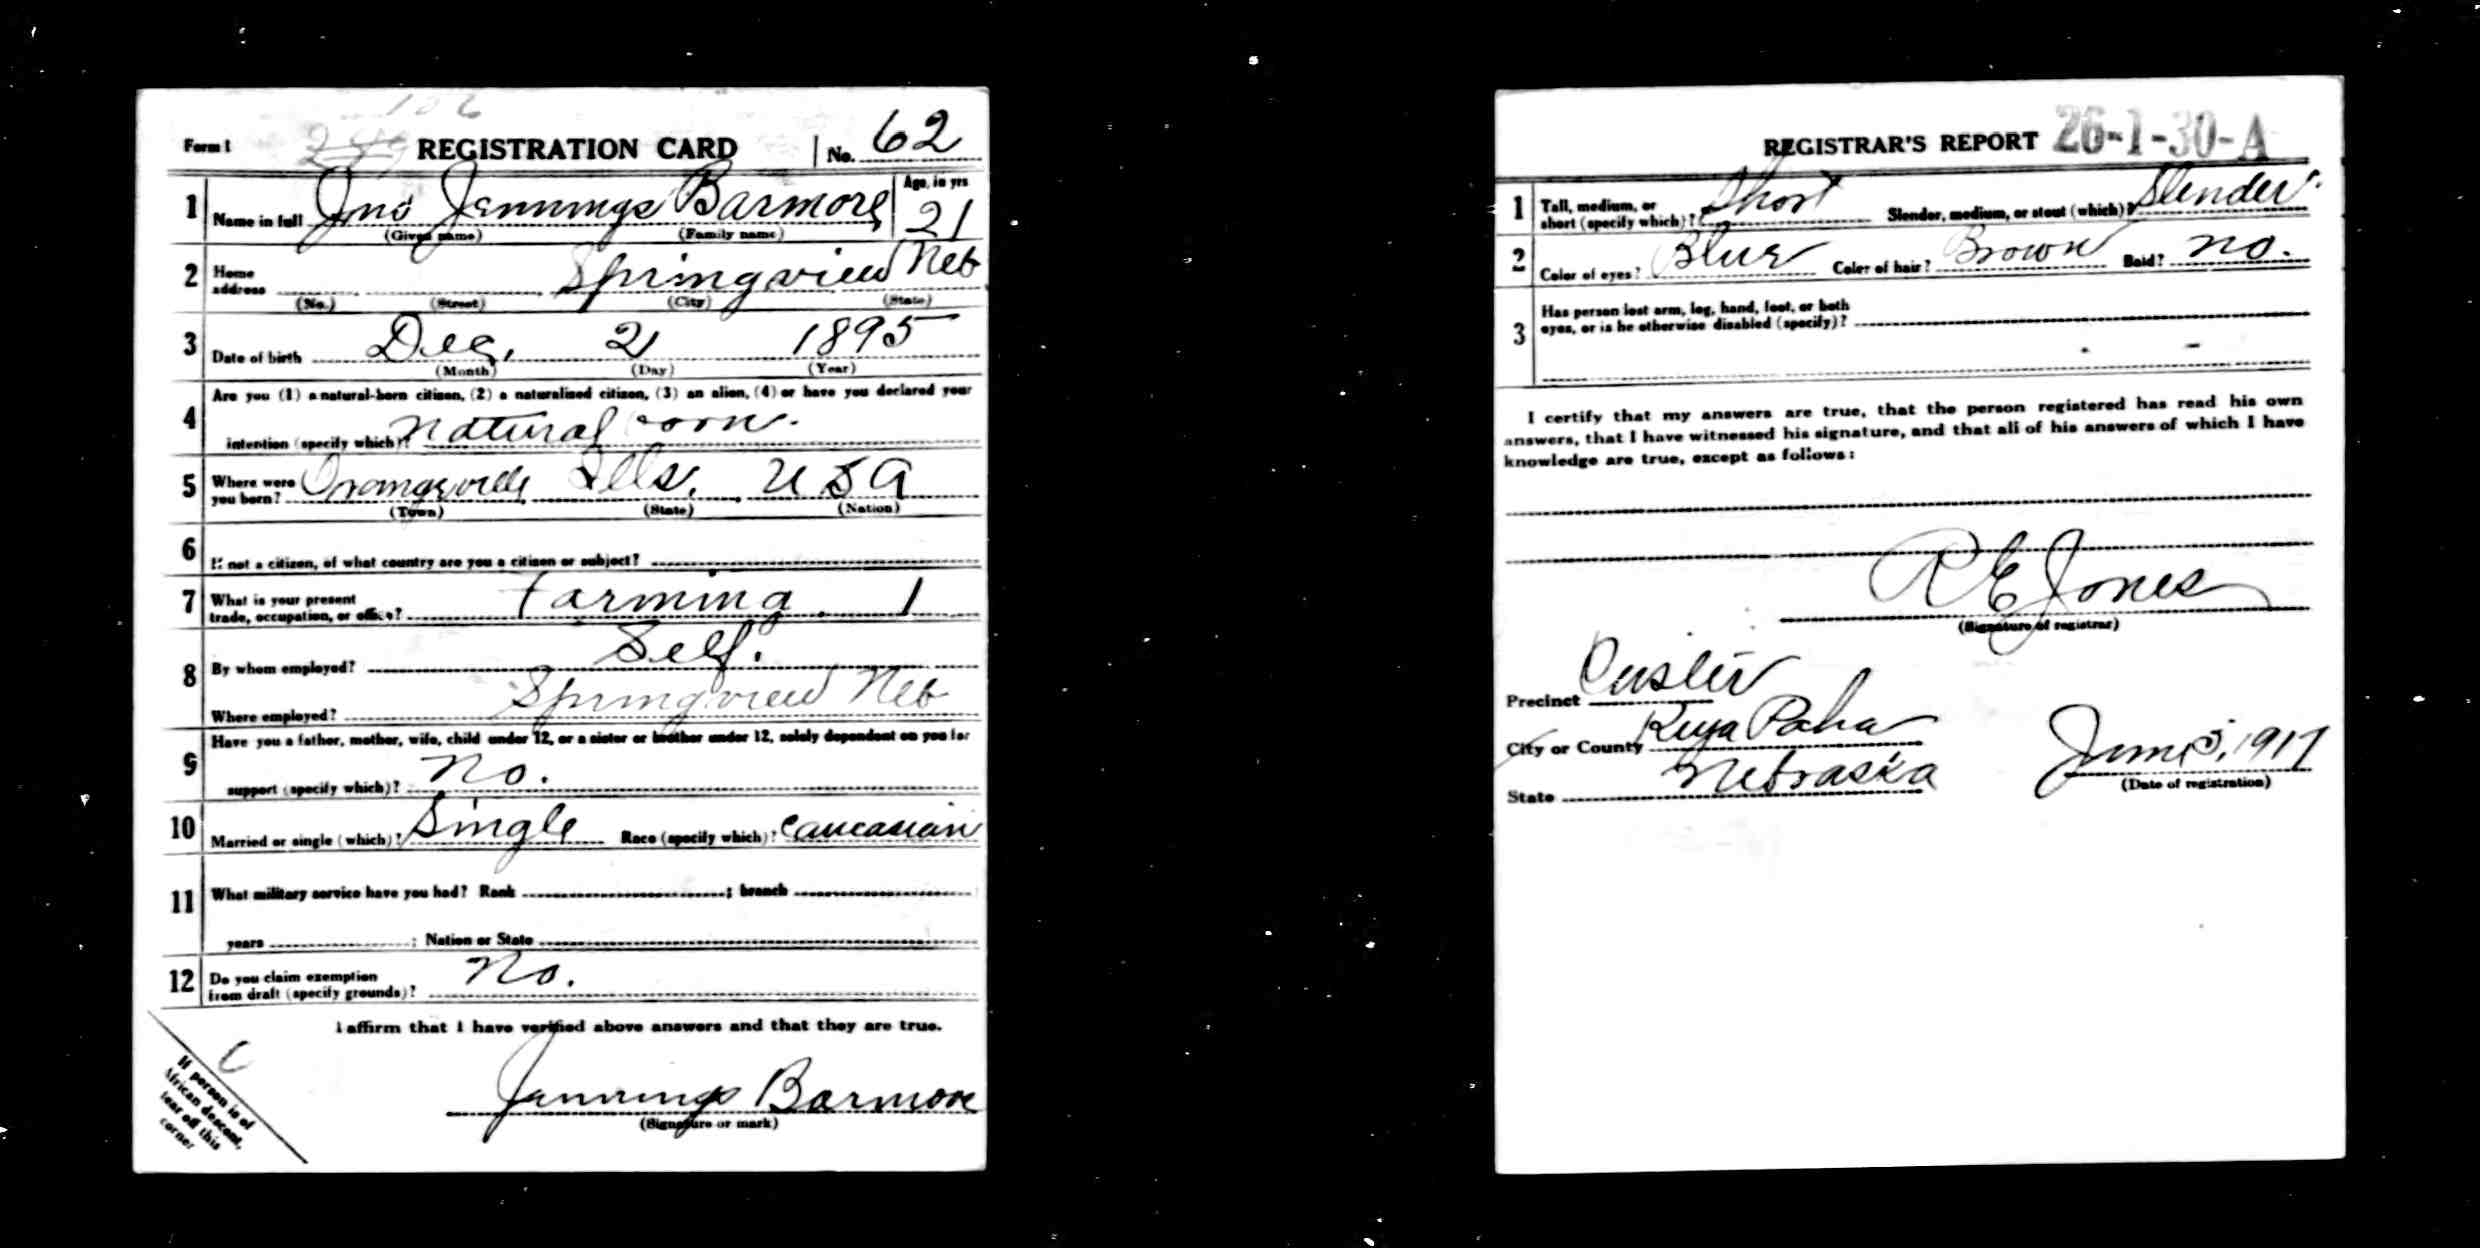 106
Form 1 REGISTRATION CARD No. 62
1 Name in full Jno Jennings Barmore Age, in yrs 21
(Given name) (Family name)
2 Home address Springview Neb
(No.) (Street) (City) (State)
3 Date of birth Dec, 2 1895
(Month) (Day) (Year)
4 Are you (1) a natural-born citizen, (2) a naturalized citizen, (3) an alien, (4) or have you declared your
intention (specify which)? natural born.
5 Where were you born? Orangeville Ills. USA
(Town) (State) (Nation)
6 If not a citizen, of what country are you a citizen or subject?
7 What is your present trade, occupation, or office? Farming. 1
8 By whom employed? Self.
Where employed? Springview Neb
9 Have you a father, mother, wife, child under 12, or a sister or brother under 12, solely dependent on you for
support (specify which)? No.
10 Married or single (which)? Single Race (specify which)? Caucasian
11 What military service have you had? Rank ; branch
years ; Nation or State
12 Do you claim exemption from draft (specify grounds)? No.
I affirm that I have verified above answers and that they are true.
Jennings Barmore
(Signature or mark)
C
If person is of
African descent,
tear off this
corner
REGISTRAR'S REPORT 26-1-30-A
1 Tall, medium, or short (specify which)? Short Slender, medium, or stout (which)? Slender.
2 Color of eyes? Blue Color of hair? Brown Bald? no.
3 Has person lost arm, leg, hand, foot, or both
eyes, or is he otherwise disabled (specify)?
I certify that my answers are true, that the person registered has read his own
answers, that I have witnessed his signature, and that all of his answers of which I have
knowledge are true, except as follows:
R E Jones
(Signature of registrar)
Precinct Custer
City or County Keya Paha
State Nebraska
June 5, 1917
(Date of registration)